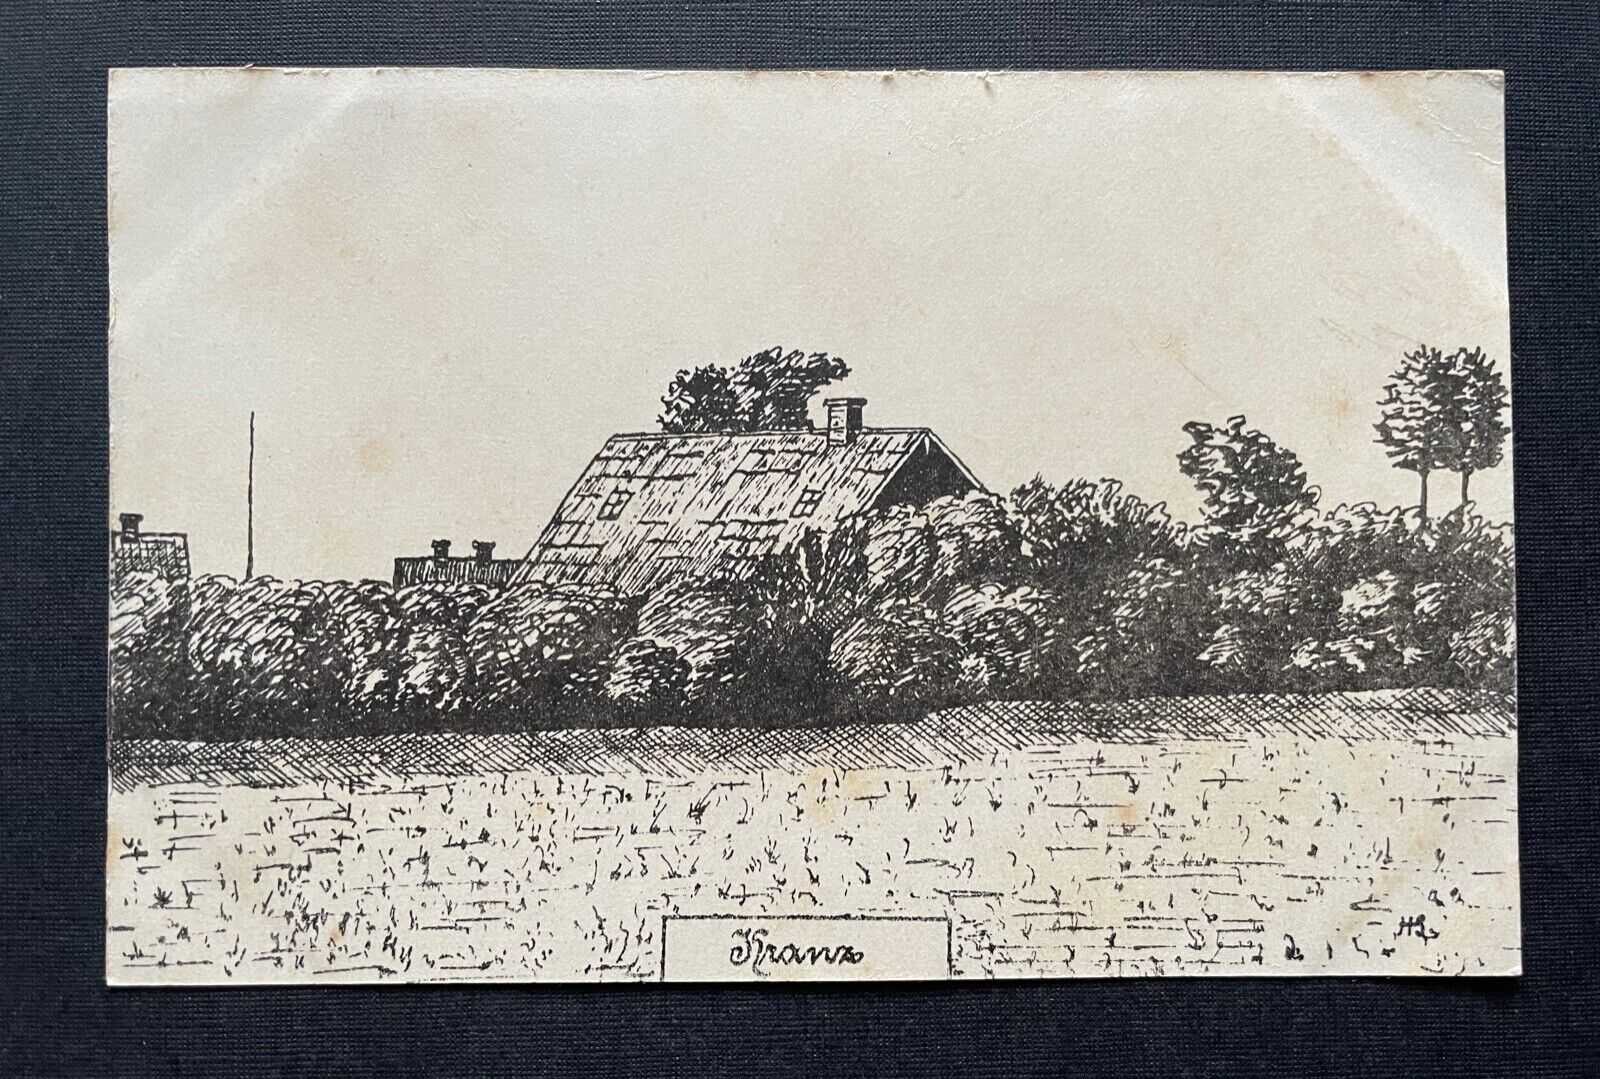 HL
Kranz